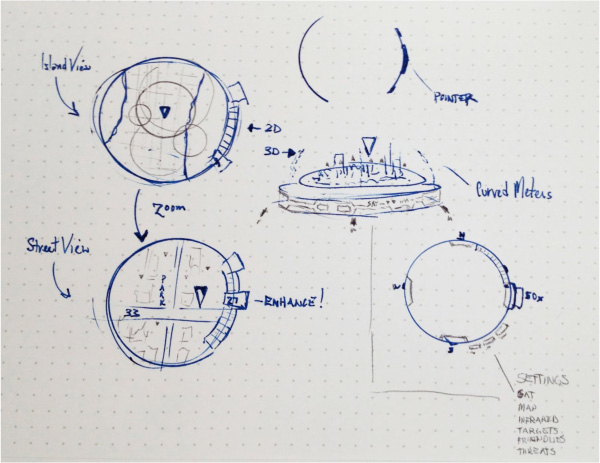 Island View
POINTER
2D
3D
Curved Meters
Zoom
Street View
PARK
33
27
ENHANCE!
N
W
50x
S
SETTINGS
SAT
MAP
INFRARED
TARGETS
FRIENDLIES
THREATS